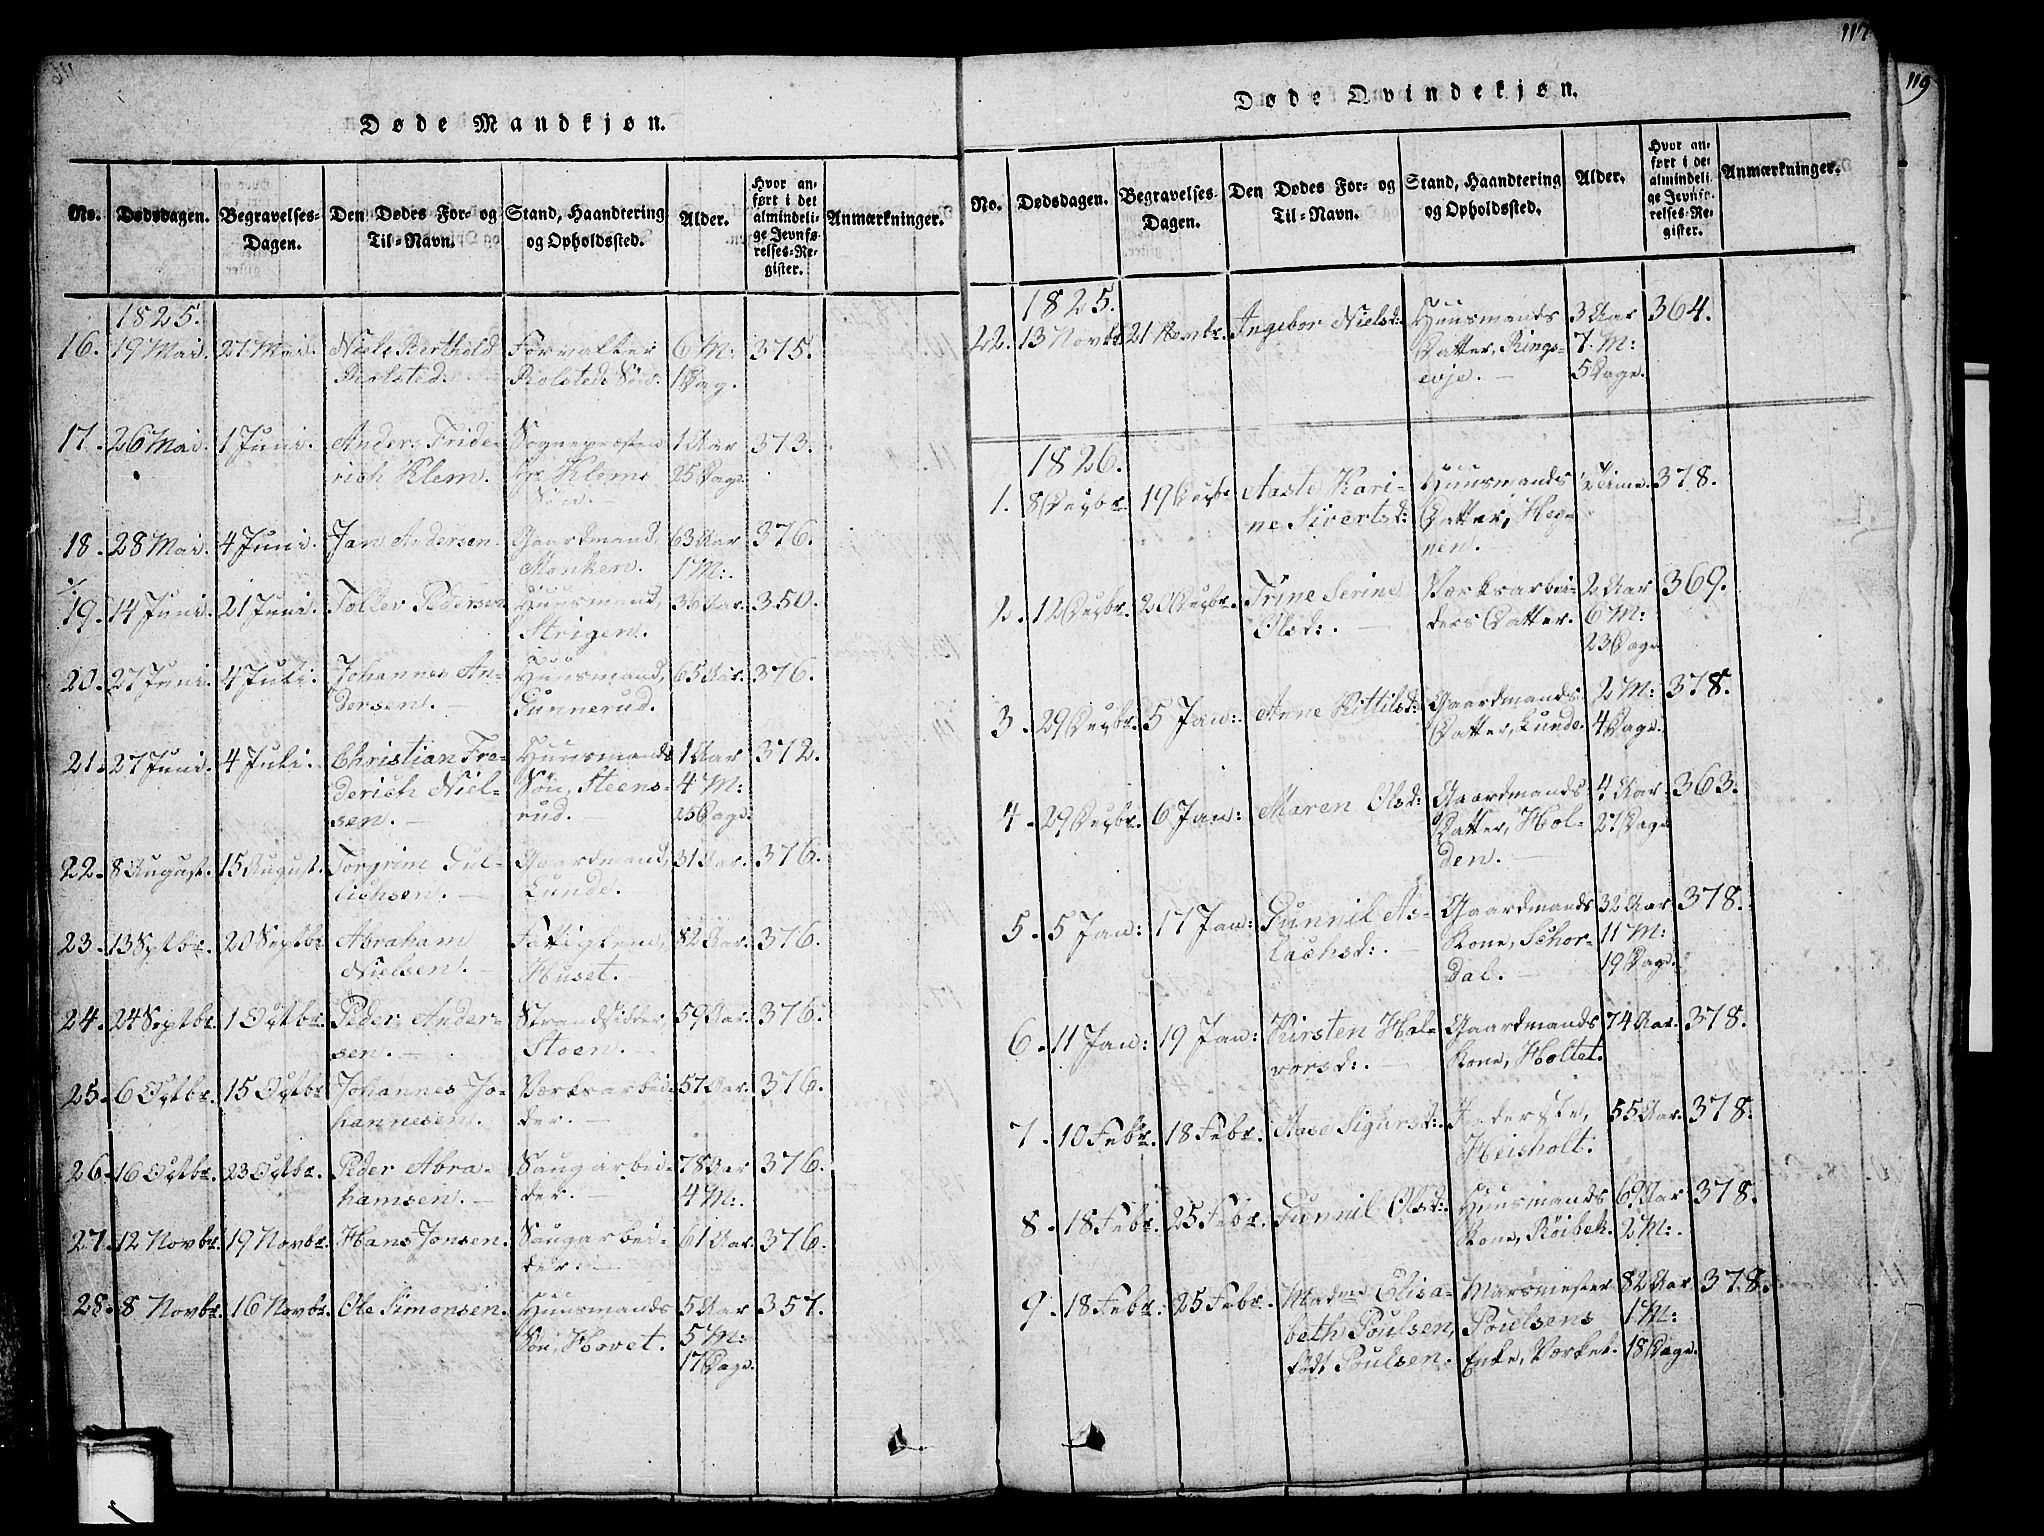 117
119
Døde Mandkjøn.
No. Dødsdagen. Begravelses-Dagen. Den Dødes For- og Til-Navn. Stand, Haandtering og Opholdssted. Alder. Hvor anført i det almindelige Jevnførelses-Register. Anmærkninger.
1825.
16. 19 Mai. 27 Mai. Niels Berthold Forvalter 6 M: 375.
Rolsted. Rolsteds Søn. 1 Dag.
17. 26 Mai. 1 Juni. Anders Fride- Sognepræsten 1 Aar 373.
rich Klem. Hr. Klems 25 Dage
Søn.
18. 28 Mai. 4 Juni. Jan Andersen. Gaardmand, 63 Aar 376.
Monken. 1 M:
19. 14 Juni. 21 Juni. Toller Pedersen Huusmand, 36 Aar. 350.
Strigen.
20. 27 Juni. 4 Juli. Johannes An- Huusmand, 65 Aar. 376.
dersen. Gunnerud.
21. 27 Juni. 4 Juli. Christian Fre- Huusmands 1 Aar 372.
derich Niel- Søn, Steens- 4 M:
sen. rud. 25 Dage.
22. 8 August. 15 August. Torgrim Gul- Gaardmand, 31 Aar. 376.
lichsen. Lunde.
23. 13 Septbr. 20 Septbr Abraham Fattiglem, 82 Aar. 376.
Nielsen. Huset.
24. 24 Septbr. 1 Octbr. Peder Ander- Strandsidder, 59 Aar. 376.
sen. Stoen.
25. 6 Octbr. 15 Octbr Johannes Jo- Værksarbei- 57 Aar. 376.
hannesen. der.
26. 16 Octbr. 23 Octbr. Peder Abra- Saugarbei- 78 Aar 376.
hamsen. der. 4 M:
27. 12 Novbr. 19 Novbr. Hans Jonsen. Saugarbei- 61 Aar. 376.
der.
28. 8 Novbr. 16 Novbr. Ole Simonsen. Huusmands 5 Aar 357.
Søn, Hovet. 5 M:
17 Dage.
Døde Qvindekjøn.
No. Dødsdagen. Begravelses Dagen. Den Dødes For- og Til-Navn. Stand, Haandtering og Opholdssted. Alder. Hvor anført i det almindelige Jevnførelses-Register. Anmærkninger.
1825.
22. 13 Novbr. 21 Novbr. Ingebor Nielsd: Huusmands 3 Aar 364.
Datter, Rings- 7 M:
evje. 5 Dage.
1826.
1. 8 Decbr. 19 Decbr. Aaste Kari- Huusmands 378.
ne Sivertsd: Datter, Heg-
nen.
2. 12 Decbr. 20 Decbr. Trine Serine Værksarbei- 2 Aar 369.
Olsd: ders Datter. 6 M:
23 Dage
3. 29 Decbr. 5 Jan: Anne Kittilsd: Gaardmands 2 M: 378.
Datter, Lunde. 4 Dage.
4. 29 Decbr. 6 Jan: Maren Olsd: Gaardmands 4 Aar 363.
Datter, Hol- 27 Dage
den.
5. 5 Jan: 17 Jan: Gunnil As- Gaardmands 32 Aar 378.
lachsd: Kone, Schor- 11 M:
dal. 19 Dage.
6. 11 Jan: 19 Jan: Kirsten Hal- Gaardmands 74 Aar. 378.
vorsd: Kone, Holtet.
7. 10 Febr. 18 Febr. Aase Sigursd: Inderste, 55 Aar. 378.
Heisholt.
8. 18 Febr. 25 Febr. Gunnil Olsd: Huusmands 69 Aar 378.
Kone, Röibek. 2 M:
9. 18 Febr. 25 Febr. Madme Elisa- Marsmester 82 Aar 378.
beth Poulsen, Poulsens 1 M:
født Poulsen. Enke, Værket. 18 Dage.